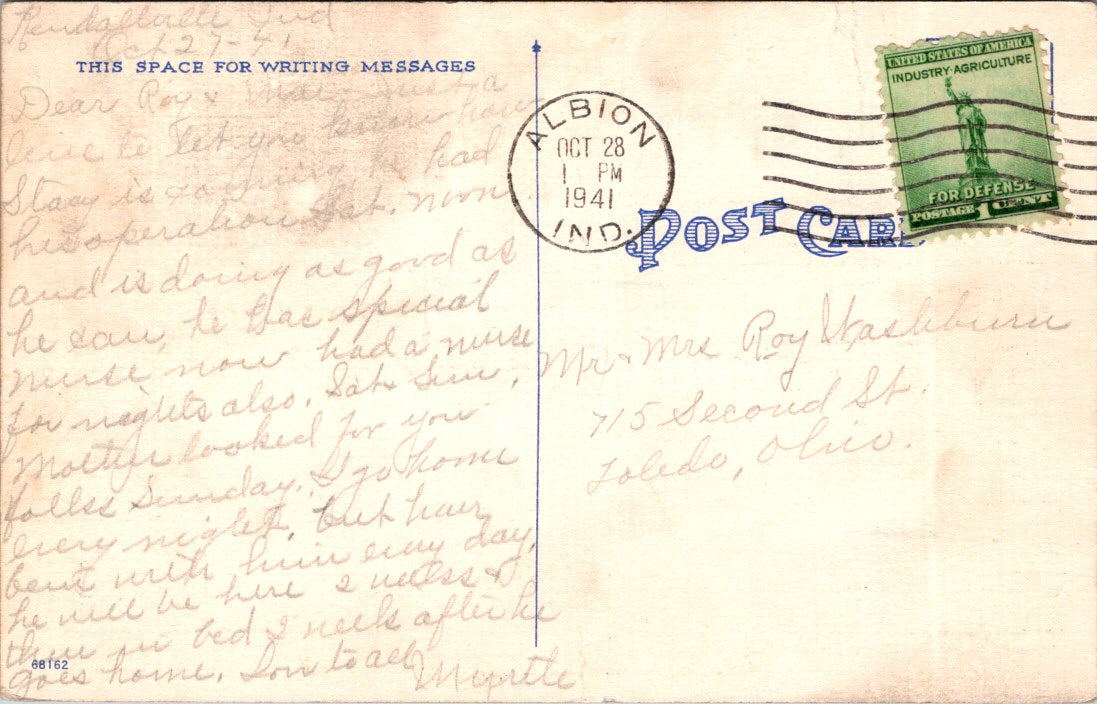 Kendallville Ind
Oct 27-41
THIS SPACE FOR WRITING MESSAGES
Dear Roy & Mae, Just a
line to let you know how
Stacy is coming he had
his operation Sat. morn
and is doing as good as
he can, he has special
nurse now had a nurse
for nights also, Sat Sun,
Mother looked for you
folks Sunday. I go home
every night, but have
been with him every day,
he will be here 2 weeks &
then in bed 2 weeks after he
goes home. Love to all
Myrtle
68162
ALBION
OCT 28
1 PM
1941
IND.
UNITED STATES OF AMERICA
INDUSTRY·AGRICULTURE
FOR DEFENSE
POSTAGE 1 CENT
POST CAR
Mr & Mrs Roy Washburn
715 Second St.
Toledo, Ohio.